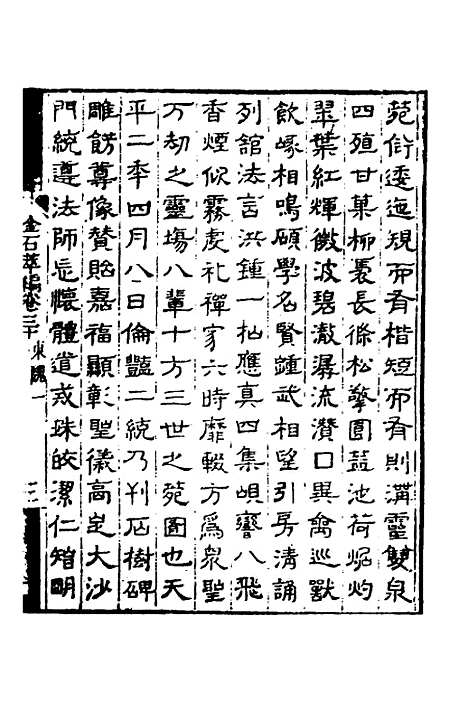 苑衍逶迤現而有楷短而有則溝靈雙泉
四殖甘菓柳褭長條松擎圓葢池荷焜灼
翠葉紅輝微波碧潋潺流濽口異禽巡獸
飲啄相鳴碩學名賢鍾武相望引房清誦
列舘法言洪鍾一扣應真四集峴響八飛
香煙似霧處礼禪家六時靡輟方為泉聖
万劫之靈塲八輩十方三世之苑圖也天
平二年四月八日倫豔二統乃刊石樹碑
雕餝尊像賛貽嘉福顯彰聖儀高㝎大沙
門統遵法師忘懷體道戎珠皎潔仁智明
金石萃編卷三十 東魏一
三